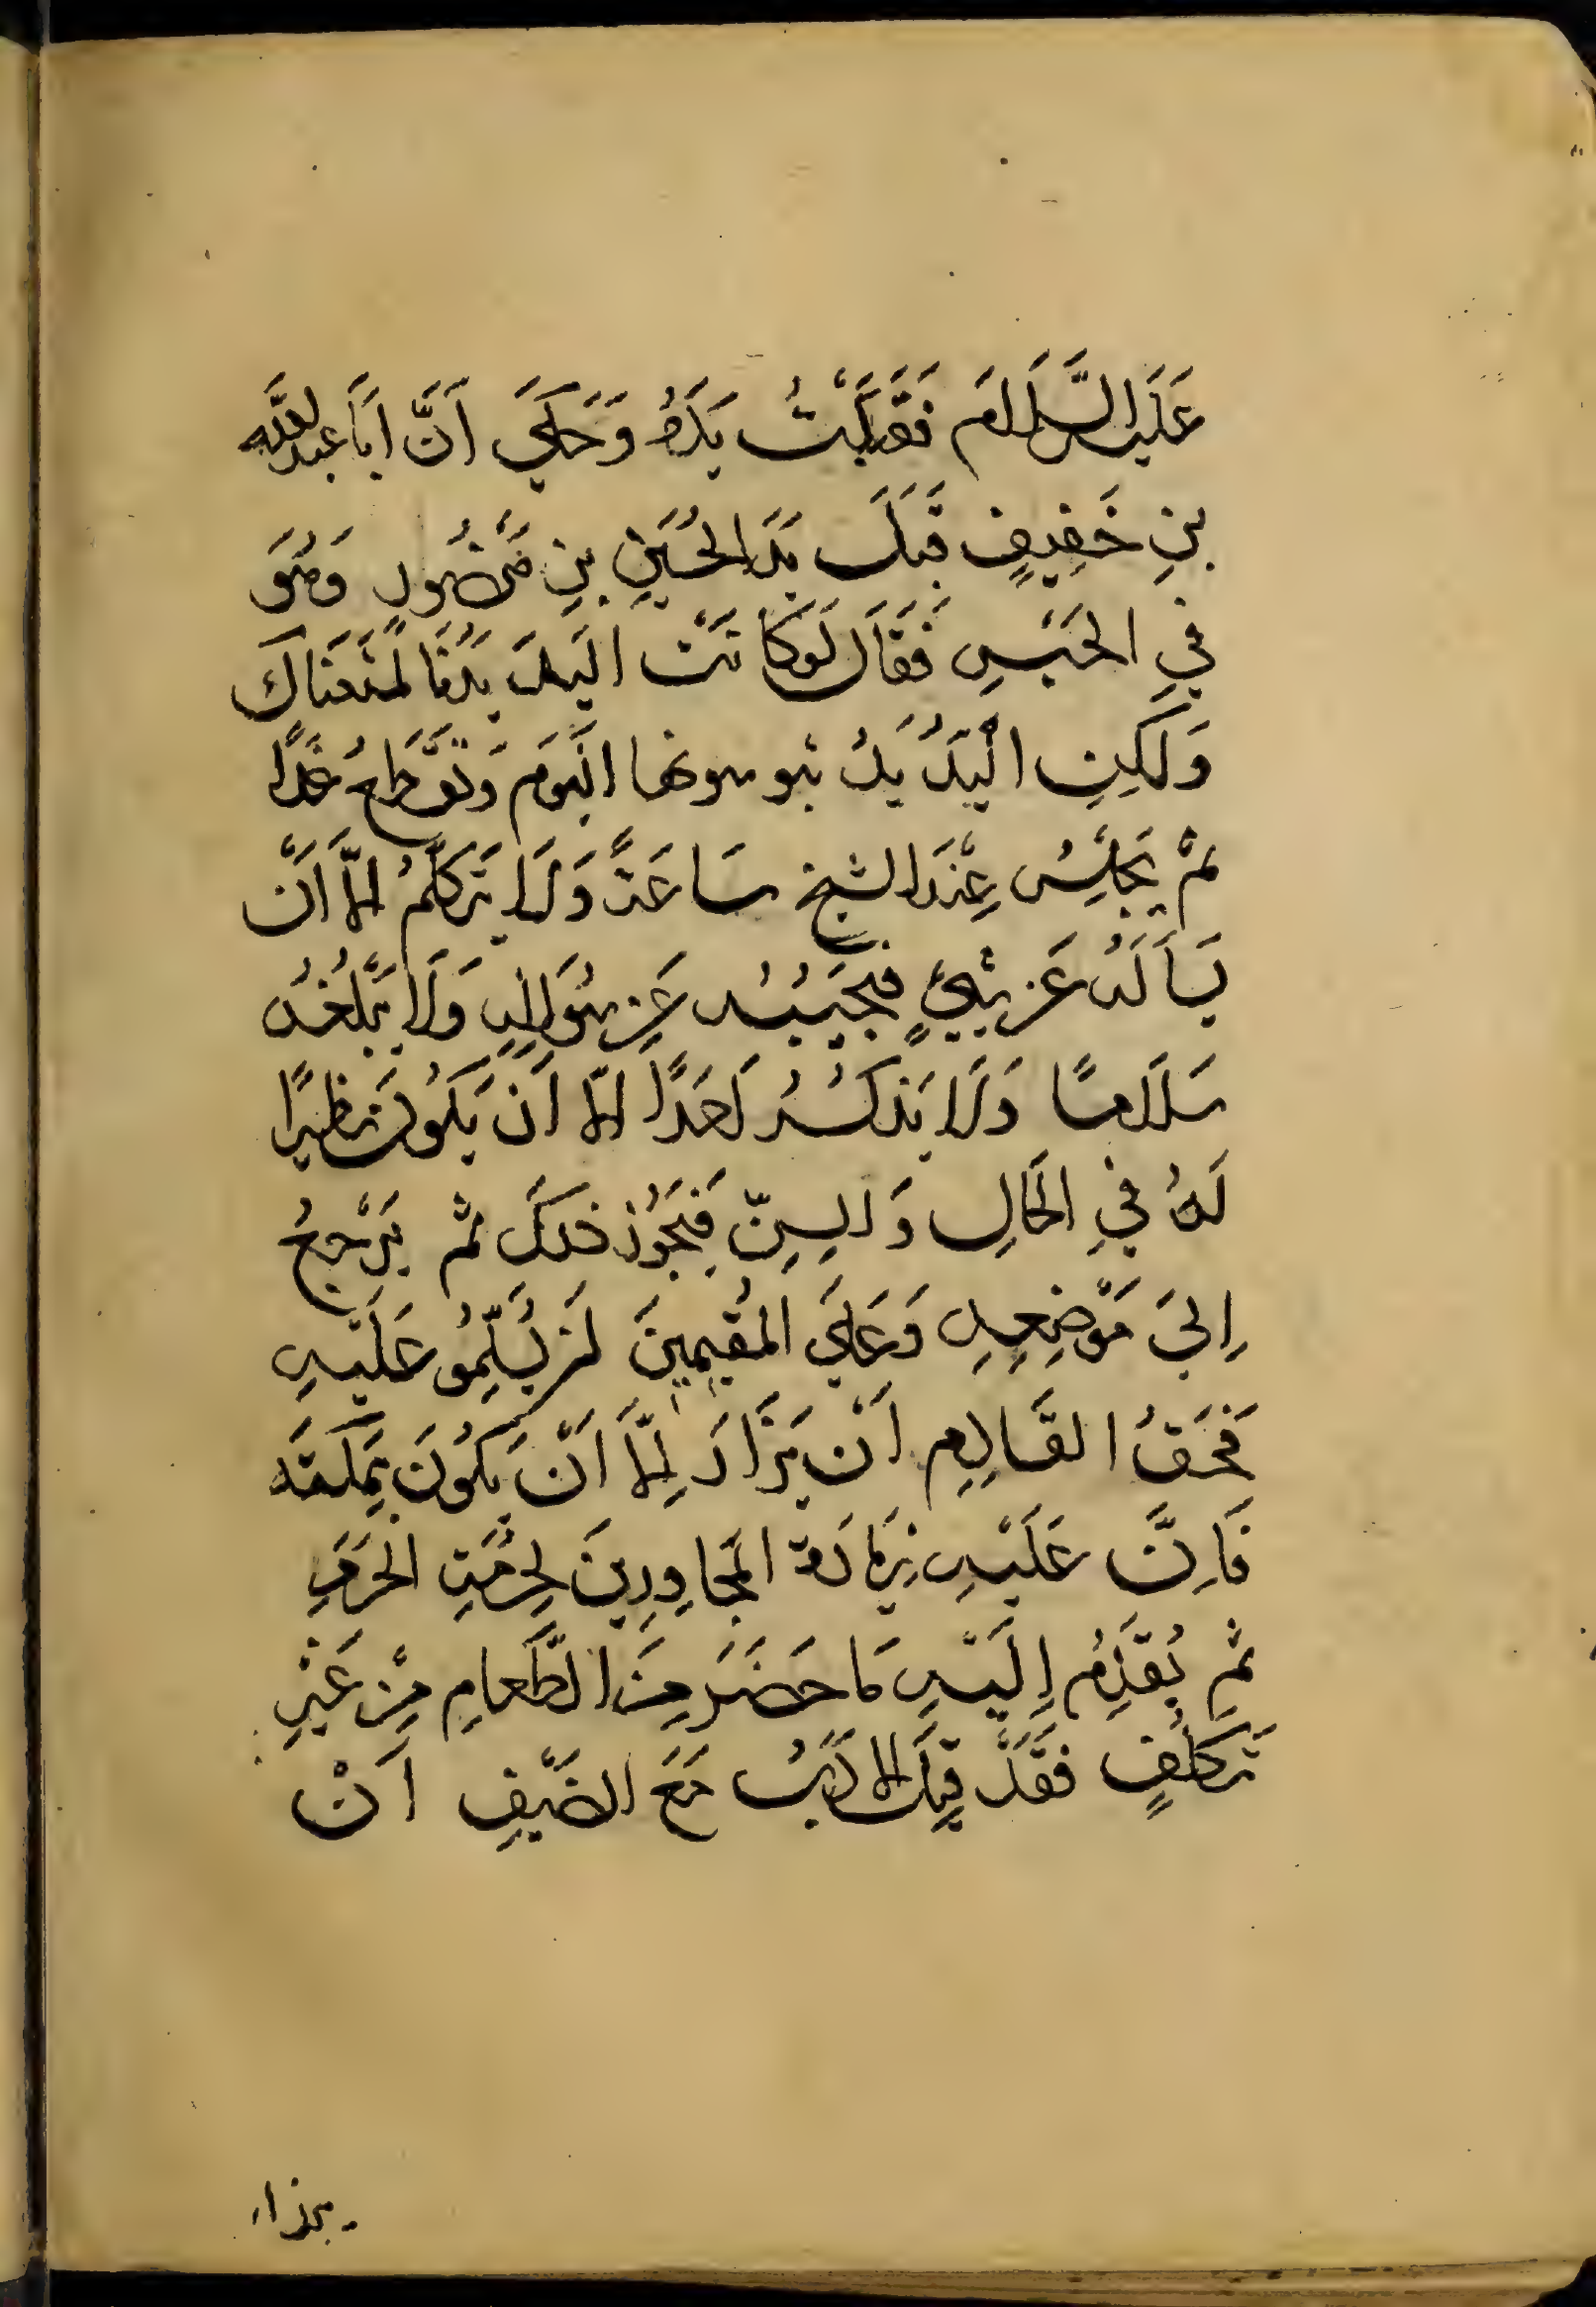 عَلَيهِ السَّلَامَ فَقَبَّلَتْ يَدَهُ وَحَكَيَ اَنَّ اَبَا عبداللَّه
بنِ خَفِيفٍ قَبَّلَ يَدَ الحُسَينِ بنِ مَنْصُورٍ وَهُوَ
فيِ الحَبْسِ فَقَالَ لَوكَانَتْ اليَد يَدُنَا لَمَنَعْنَاكَ
وَلَكِنِ الْيَدُ يَدُ يبوسونها اليَومَ وَتُقْطَعُ غَدًا
ثم يَجلِسُ عِنْدَ الشيخ سَاعَةً وَلَا يَتَكَلَّمُ اِلَّا اَنْ
يَسْأَلَهُ عَن شَيْءٍ فيجيبُه عَن سُوَالِهِ وَلَا يُبَلِّغُه
سَلَامًا وَلَا يَذكُرُ اَحَدًا اِلَّا اَن يَكُونَ نظيرًا
لَهُ فيِ الحَالِ وَالسِنِّ فَيَجُوزُ ذلكَ ثم يَرْجعُ
اِليَ مَوْضِعِهِ وَعَليَ المُقِيمِينَ لَمن يُسَلِّمُو عَلَيْهِ
فَحَقُ القَادِمِ اَنْ يُزَارَ اِلَّا اَنْ يَكُونَ بِمَكَّتَه
فَاِنَّ عَلَيْهِ زِيَارَة المَجاوِرِينَ لِحُرْمَةِ الحَرَمِ
ثم يُقَدِّمُ اِلَيْهِ مَا حَضَرَ مِنَ الطَّعامِ مِنْ غَيْرِ
تَكَلُفٍ فَقَدْ قِيلَ الاَدَبُ مَعَ الضَيْفِ اَنْ